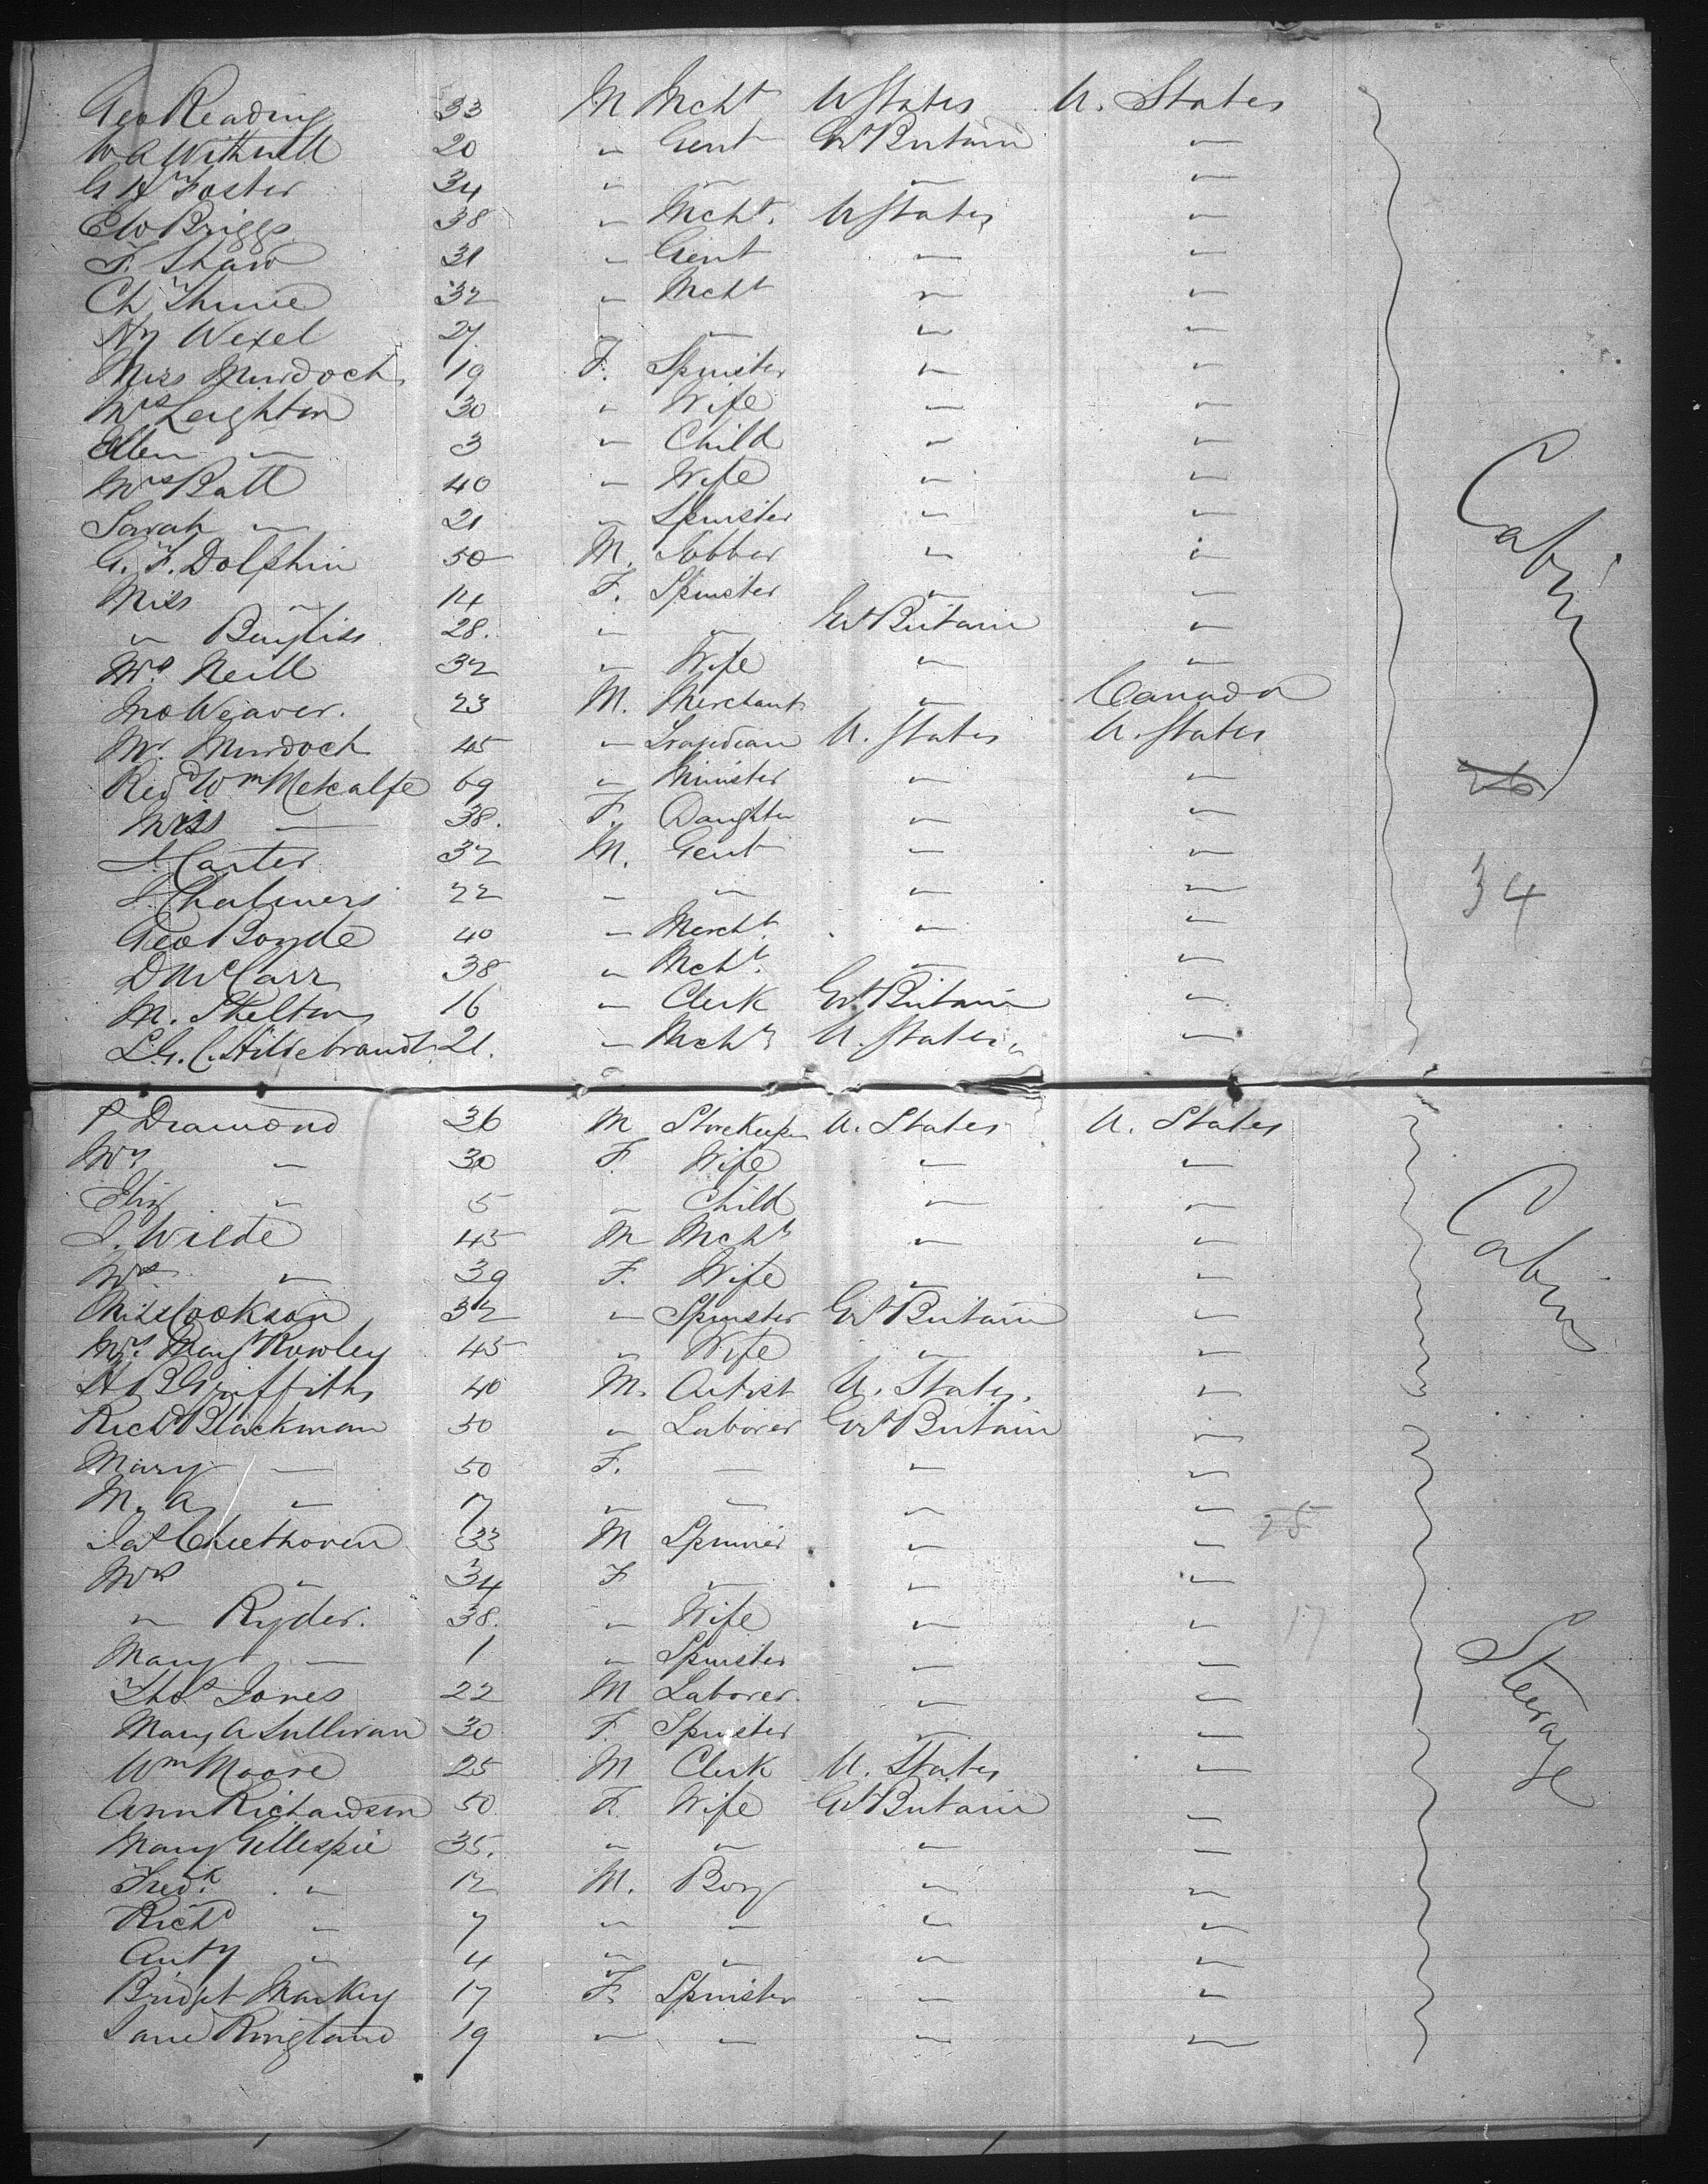 Geo Reading 33 M Mcht U States U. States
W A Withnell 20 " Gent Gt Britain "
G H Foster 34 " " " "
E W Briggs 38 " Mcht. U States "
F. Shaw 31 " Gent " "
Ch Thune 32 " Mcht " "
Hy Wexel 27 " " " "
Miss Murdoch 19 F. Spinster " "
Mrs Leighton 30 " Wife " "
Ellen " 3 " Child " "
Mrs Batt 40 " Wife " "
Sarah " 21 " Spinster " "
G. F. Dolphin 50 M. Jobber " "
Miss " 14 F. Spinster " "
" Bayliss 28. " " Gt Britain "
Mrs Neill 32 " Wife " "
Jno Weaver. 23 M. Merchant " Canada
Mr. Murdoch 45 " Tragedian U. States U. States
Revd Wm Metcalfe 69 " Minister " "
Miss — 38. F. Daughter " "
J. Carter 32 M. Gent " "
J. Chalmers 22 " " " "
Geo Boyde 40 " Mercht. " "
D McCarr 38 " Mcht. " "
M. Skelton 16 " Clerk Gt. Britain "
L. G. C. Hildebrandt 21. " Mcht U. States "
Cabin
26
34
P Diamond 36 M Storekeeper U. States U. States
Mrs " 30 F. Wife " "
Eliz " 5 " Child " "
J. Wilde 45 M Mcht " "
Mrs. " 39 F. Wife " "
Miss Cookson 32 " Spinster Gt Britain "
Mrs. Mary Rowley 45 " Wife " "
H B Griffiths 40 M. Artist U. States. "
Richd Blackman 50 " Laborer Gt Britain "
Mary — 50 F. — " "
M. A. " 17 " " " "
Jas Cheethoven 33 M Spinner " "
Mrs " 34 F " " "
" Ryder. 38. " Wife " "
Mary — 1 " Spinster " "
Thos Jones 22 M Laborer. " "
Mary A Sullivan 30 F. Spinster " "
Wm Moore 25 M Clerk U. States "
Ann Richardson 50 F. Wife Gt Britain "
Mary Gillespie 35. " " " "
Fredk. " 12 M. Boy " "
Richd " 7 " " " "
Anty " 4 " " " "
Bridget Markey 17 F. Spinster " "
Jane Ringland 19 " " " "
Cabin
25
17
Steerage